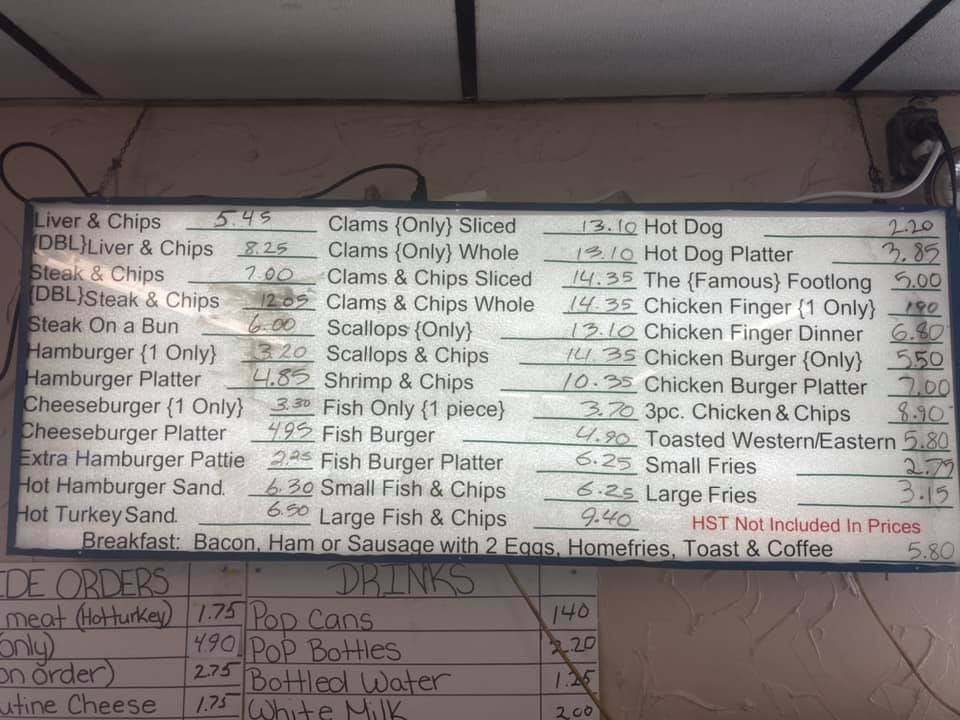 Liver & Chips 5.45
{DBL}Liver & Chips 8.25
Steak & Chips 7.00
{DBL}Steak & Chips 12.05
Steak On a Bun 6.00
Hamburger {1 Only} 3.20
Hamburger Platter 4.85
Cheeseburger {1 Only} 3.30
Cheeseburger Platter 495
Extra Hamburger Pattie 2.25
Hot Hamburger Sand. 6.30
Hot Turkey Sand. 6.50
Clams {Only} Sliced 13.10
Clams {Only} Whole 13.10
Clams & Chips Sliced 14.35
Clams & Chips Whole 14.35
Scallops {Only} 13.10
Scallops & Chips 14.35
Shrimp & Chips 10.35
Fish Only {1 piece} 3.70
Fish Burger 4.90
Fish Burger Platter 6.25
Small Fish & Chips 6.25
Large Fish & Chips 9.40
Hot Dog 2.20
Hot Dog Platter 3.85
The {Famous} Footlong 5.00
Chicken Finger {1 Only} 190
Chicken Finger Dinner 6.80
Chicken Burger {Only} 5.50
Chicken Burger Platter 7.00
3pc. Chicken & Chips 8.90
Toasted Western/Eastern 5.80
Small Fries 2.79
Large Fries 3.15
HST Not Included In Prices
Breakfast: Bacon, Ham or Sausage with 2 Eggs, Homefries, Toast & Coffee 5.80
IDE ORDERS
meat (Hot turkey) 1.75
only) 4.90
on order) 2.75
utine Cheese 1.75
DRINKS
Pop Cans 140
Pop Bottles 2.20
Bottled Water 1.25
White Milk 200